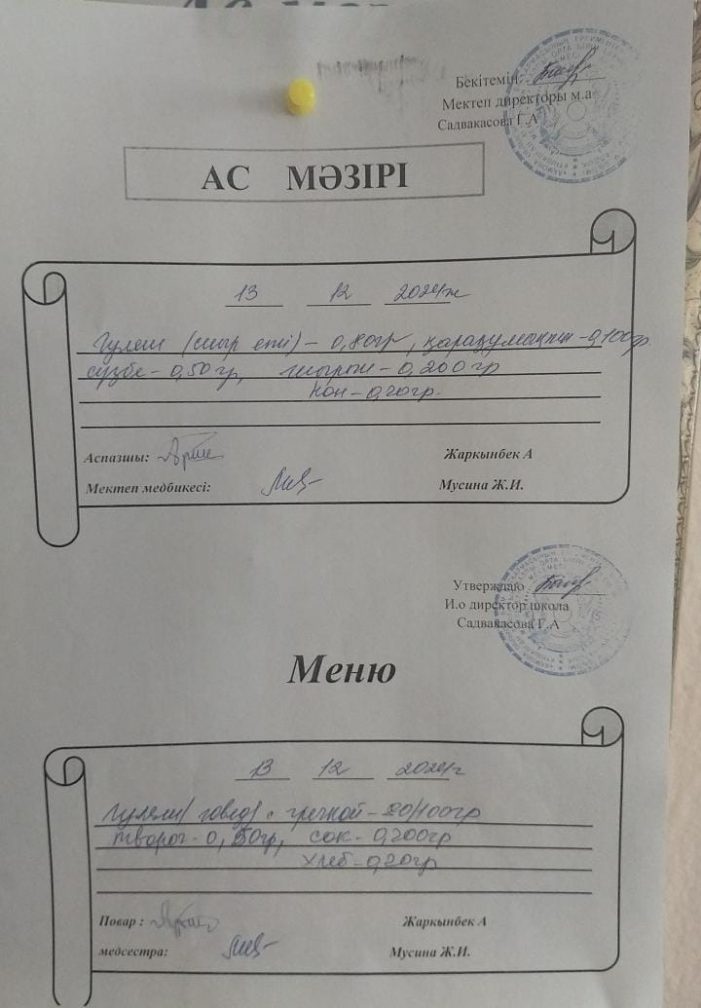 Бекітемін:
Мектеп директоры м.а
Садвакасова Г.А
АС МӘЗІРІ
13 12 2024ж
Гуляш (сиыр еті) - 0,80гр, қарақұмықпен - 0,100гр
сүзбе - 0,50гр, шырын - 0,200гр
нан - 0,20гр.
Аспазшы: Жаркынбек А
Мектеп медбикесі: Мусина Ж.И.
Утверждаю
И.о директор школа
Садвакасова Г.А
Меню
13 12 2024г
Гуляш (говяд) с гречкой - 80/100гр
творог - 0,50гр, сок - 0,200гр
хлеб - 0,20гр
Повар : Жаркынбек А
медсестра: Мусина Ж.И.